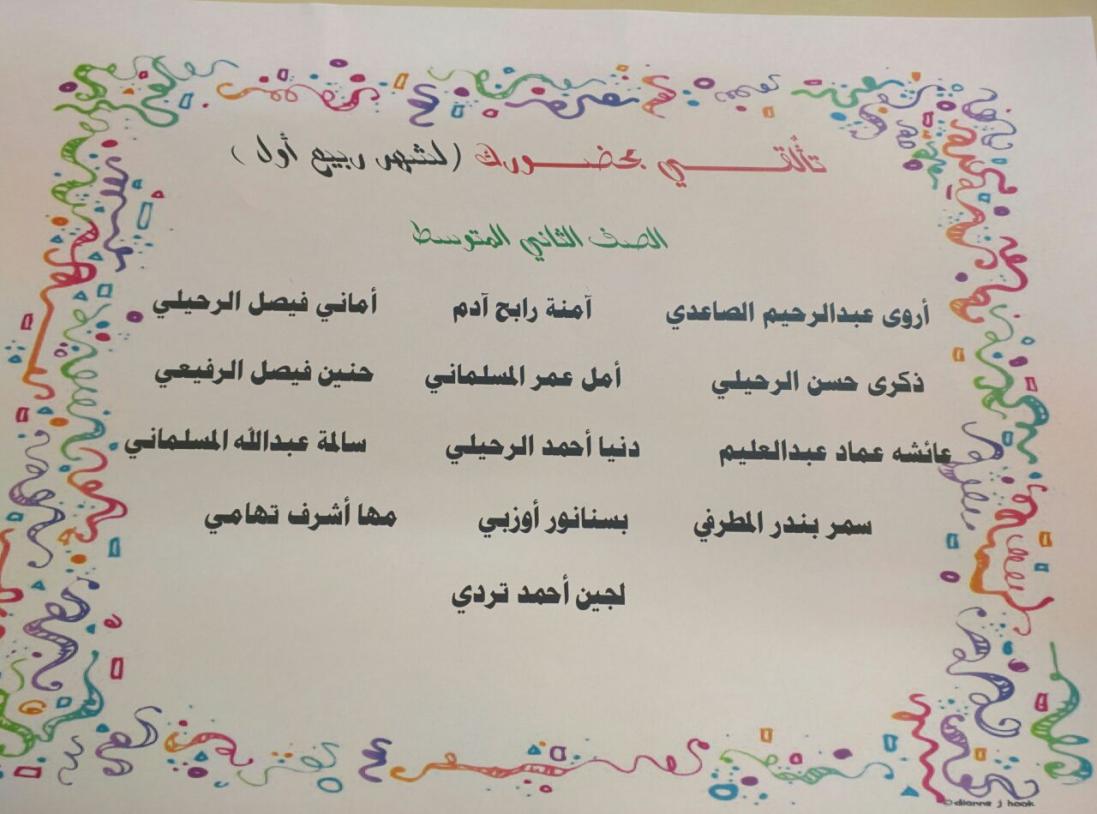 تألقي بحضورك (لشهر ربيع أول)
الصف الثاني المتوسط
أروى عبدالرحيم الصاعدي آمنة رابح آدم أماني فيصل الرحيلي
ذكرى حسن الرحيلي أمل عمر المسلماني حنين فيصل الرفيعي
عائشه عماد عبدالعليم دنيا أحمد الرحيلي سالمة عبدالله المسلماني
سمر بندر المطرفي بسنانور أوزبي مها أشرف تهامي
لجين أحمد تردي
©dianne j hook